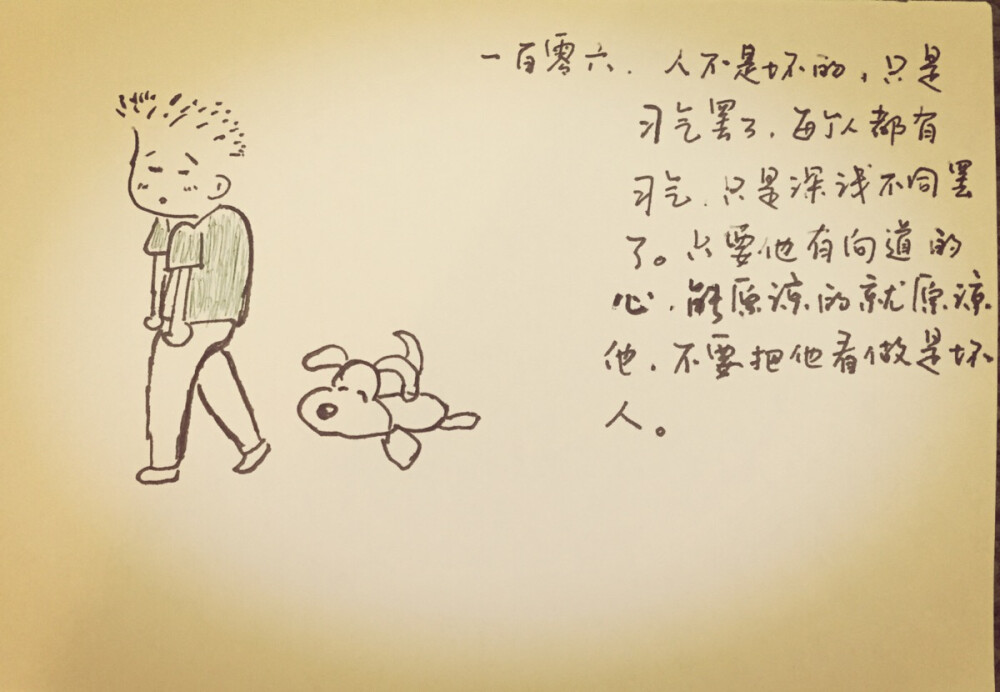 一百零六.人不是坏的,只是
习气罢了,每个人都有
习气.只是深浅不同罢
了。只要他有向道的
心,能原谅的就原谅
他,不要把他看做是坏
人。